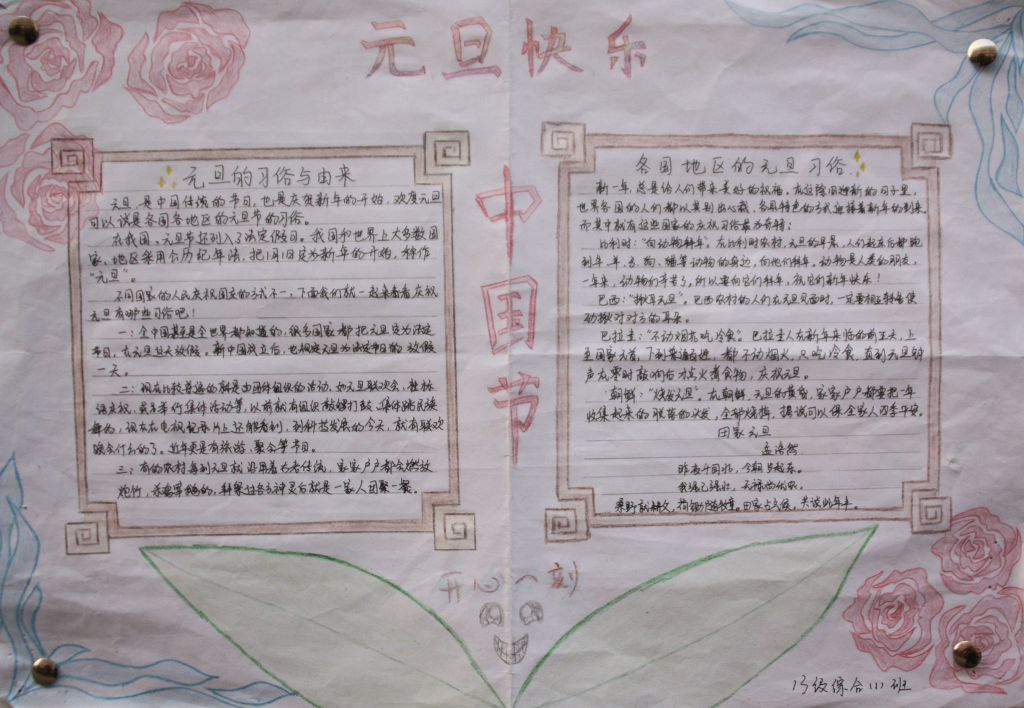 元旦快乐
中国节
元旦的习俗与由来
元旦是中国传统的节日,也是庆贺新年的开始,欢度元旦
可以说是各国各地区的元旦节的习俗。
在我国,元旦节还列入了法定假日。我国和世界上大多数国
家、地区采用公历纪年法,把1月1日定为新年的开始,称作
“元旦”。
不同国家的人民庆祝国立的方式不一,下面我们就一起来看看庆祝
元旦有哪些习俗吧!
一:全中国甚至是全世界都知道的,很多国家都把元旦定为法定
节日,在元旦当天放假。新中国成立后,也规定元旦为法定节日的放假
一天。
二:现在比较普遍的就是由团体组织的活动,如元旦联欢会,挂标
语庆祝,或在举行集体活动等,以前就有组织敲锣打鼓、集体跳民族
舞的,现在在电视纪录片上还能看到,到科技发展的今天,就有联欢
晚会什么的了。近年更是有旅游、聚会等节目。
三:有的农村每到元旦就沿用着古老传统,家家户户都会燃放
炮竹,杀鸡宰鹅的,拜祭过各方神灵后就是一家人团聚一餐。
各国地区的元旦习俗
新一年,总是给人们带来美好的祝福,在这除旧迎新的日子里,
世界各国的人们都以其别出心裁、各具特色的方式迎接着新年的到来,
而其中就有这些国家的庆祝习俗最为奇特:
比利时:“向动物拜年”。在比利时农村,元旦的早晨,人们起床后都跑
到牛、羊、马、狗、猫等动物的身边,向他们拜年,动物是人类的朋友,
一年来,动物们辛苦了,所以要向它们拜年,祝它们新年快乐!
巴西:“揪耳元旦”。巴西农村的人们在元旦见面时,一定要相互转着使
劲揪对方的耳朵。
巴拉圭:“不动烟火吃冷食”。巴拉圭人在新年来临的前五天,上
至国家元首,下到普通百姓,都不动烟火,只吃冷食,直到元旦钟
声在零时敲响后才点火煮食物,庆祝元旦。
朝鲜:“烧发元旦”。在朝鲜,元旦的黄昏,家家户户都要把一年
收集起来的脱落的头发,全部烧掉,据说可以保全家人四季平安。
田家元旦
孟浩然
昨夜斗回北,今朝岁起东。
我强已强壮,无禄尚忧农。
桑野就耕父,荷锄随牧童。田家占气候,共说此年丰。
开心一刻
13级综合111班